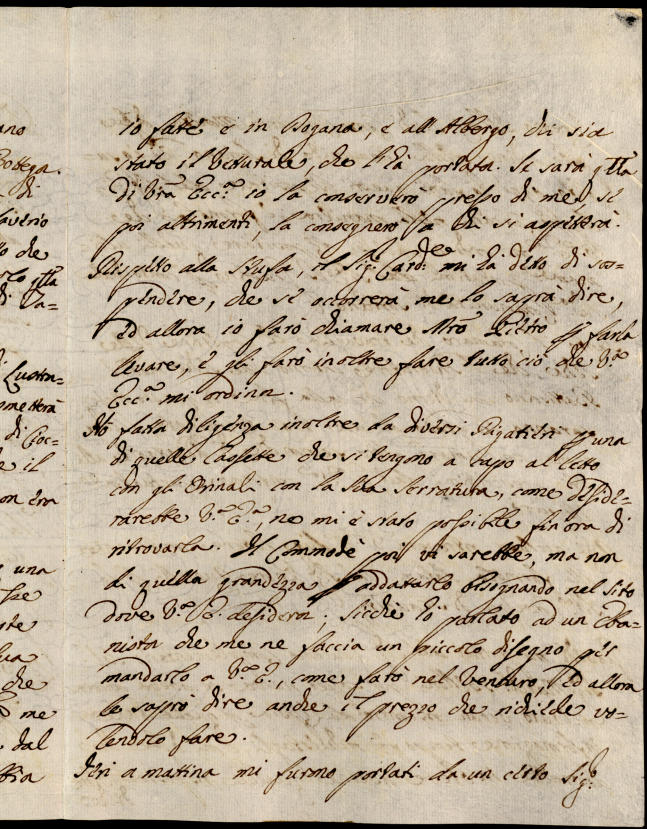 io farè e in Dogana, e all'Albergo, chi sia
stato il Vetturale, che l'hà portata. Se sarà qtta
di Vrã Ecc.ª io la conserverò presso di me, sè
poi altrimenti, la consegnerò à chi si aspetterà.
Rispetto alla Stufa, il Sig.r Card.le mi hà detto di sos=
pendere, che sè occorrerà, me lo saprà dire,
ed allora io farò chiamare Mrõ Pietro p farla
levare, è gli farò inoltre fare tutto ciò, che V.ª
Ecc.ª mi ordina.
Hò fatta diligenza inoltre da diversi Rigattieri p una
di quelle Cassette che si tengono a capo al letto
con gli Orinali con la sua serratura, come deside=
rarebbe V.ª E.ª, ne mi è stato possibile finora di
ritrovarla. Il Commodè poi vi sarebbe, ma non
di quella grandezza p addattarlo bisognando nel sito
dove V.ª E. desidera; sicchè hò parlato ad un Eba=
nista che me ne faccia un piccolo disegno per
mandarlo a V.ª E., come farò nel venturo, ed allora
le saprò dire anche il prezzo che richiede vo=
lendolo fare.
Jeri a mattina mi furono portati da un certo Sig.r
ano
Bottega.
di
to che
qtta
di Ca=
Lustra=
ometterà
di Cioc=
e il
on era
una
che
me
dal